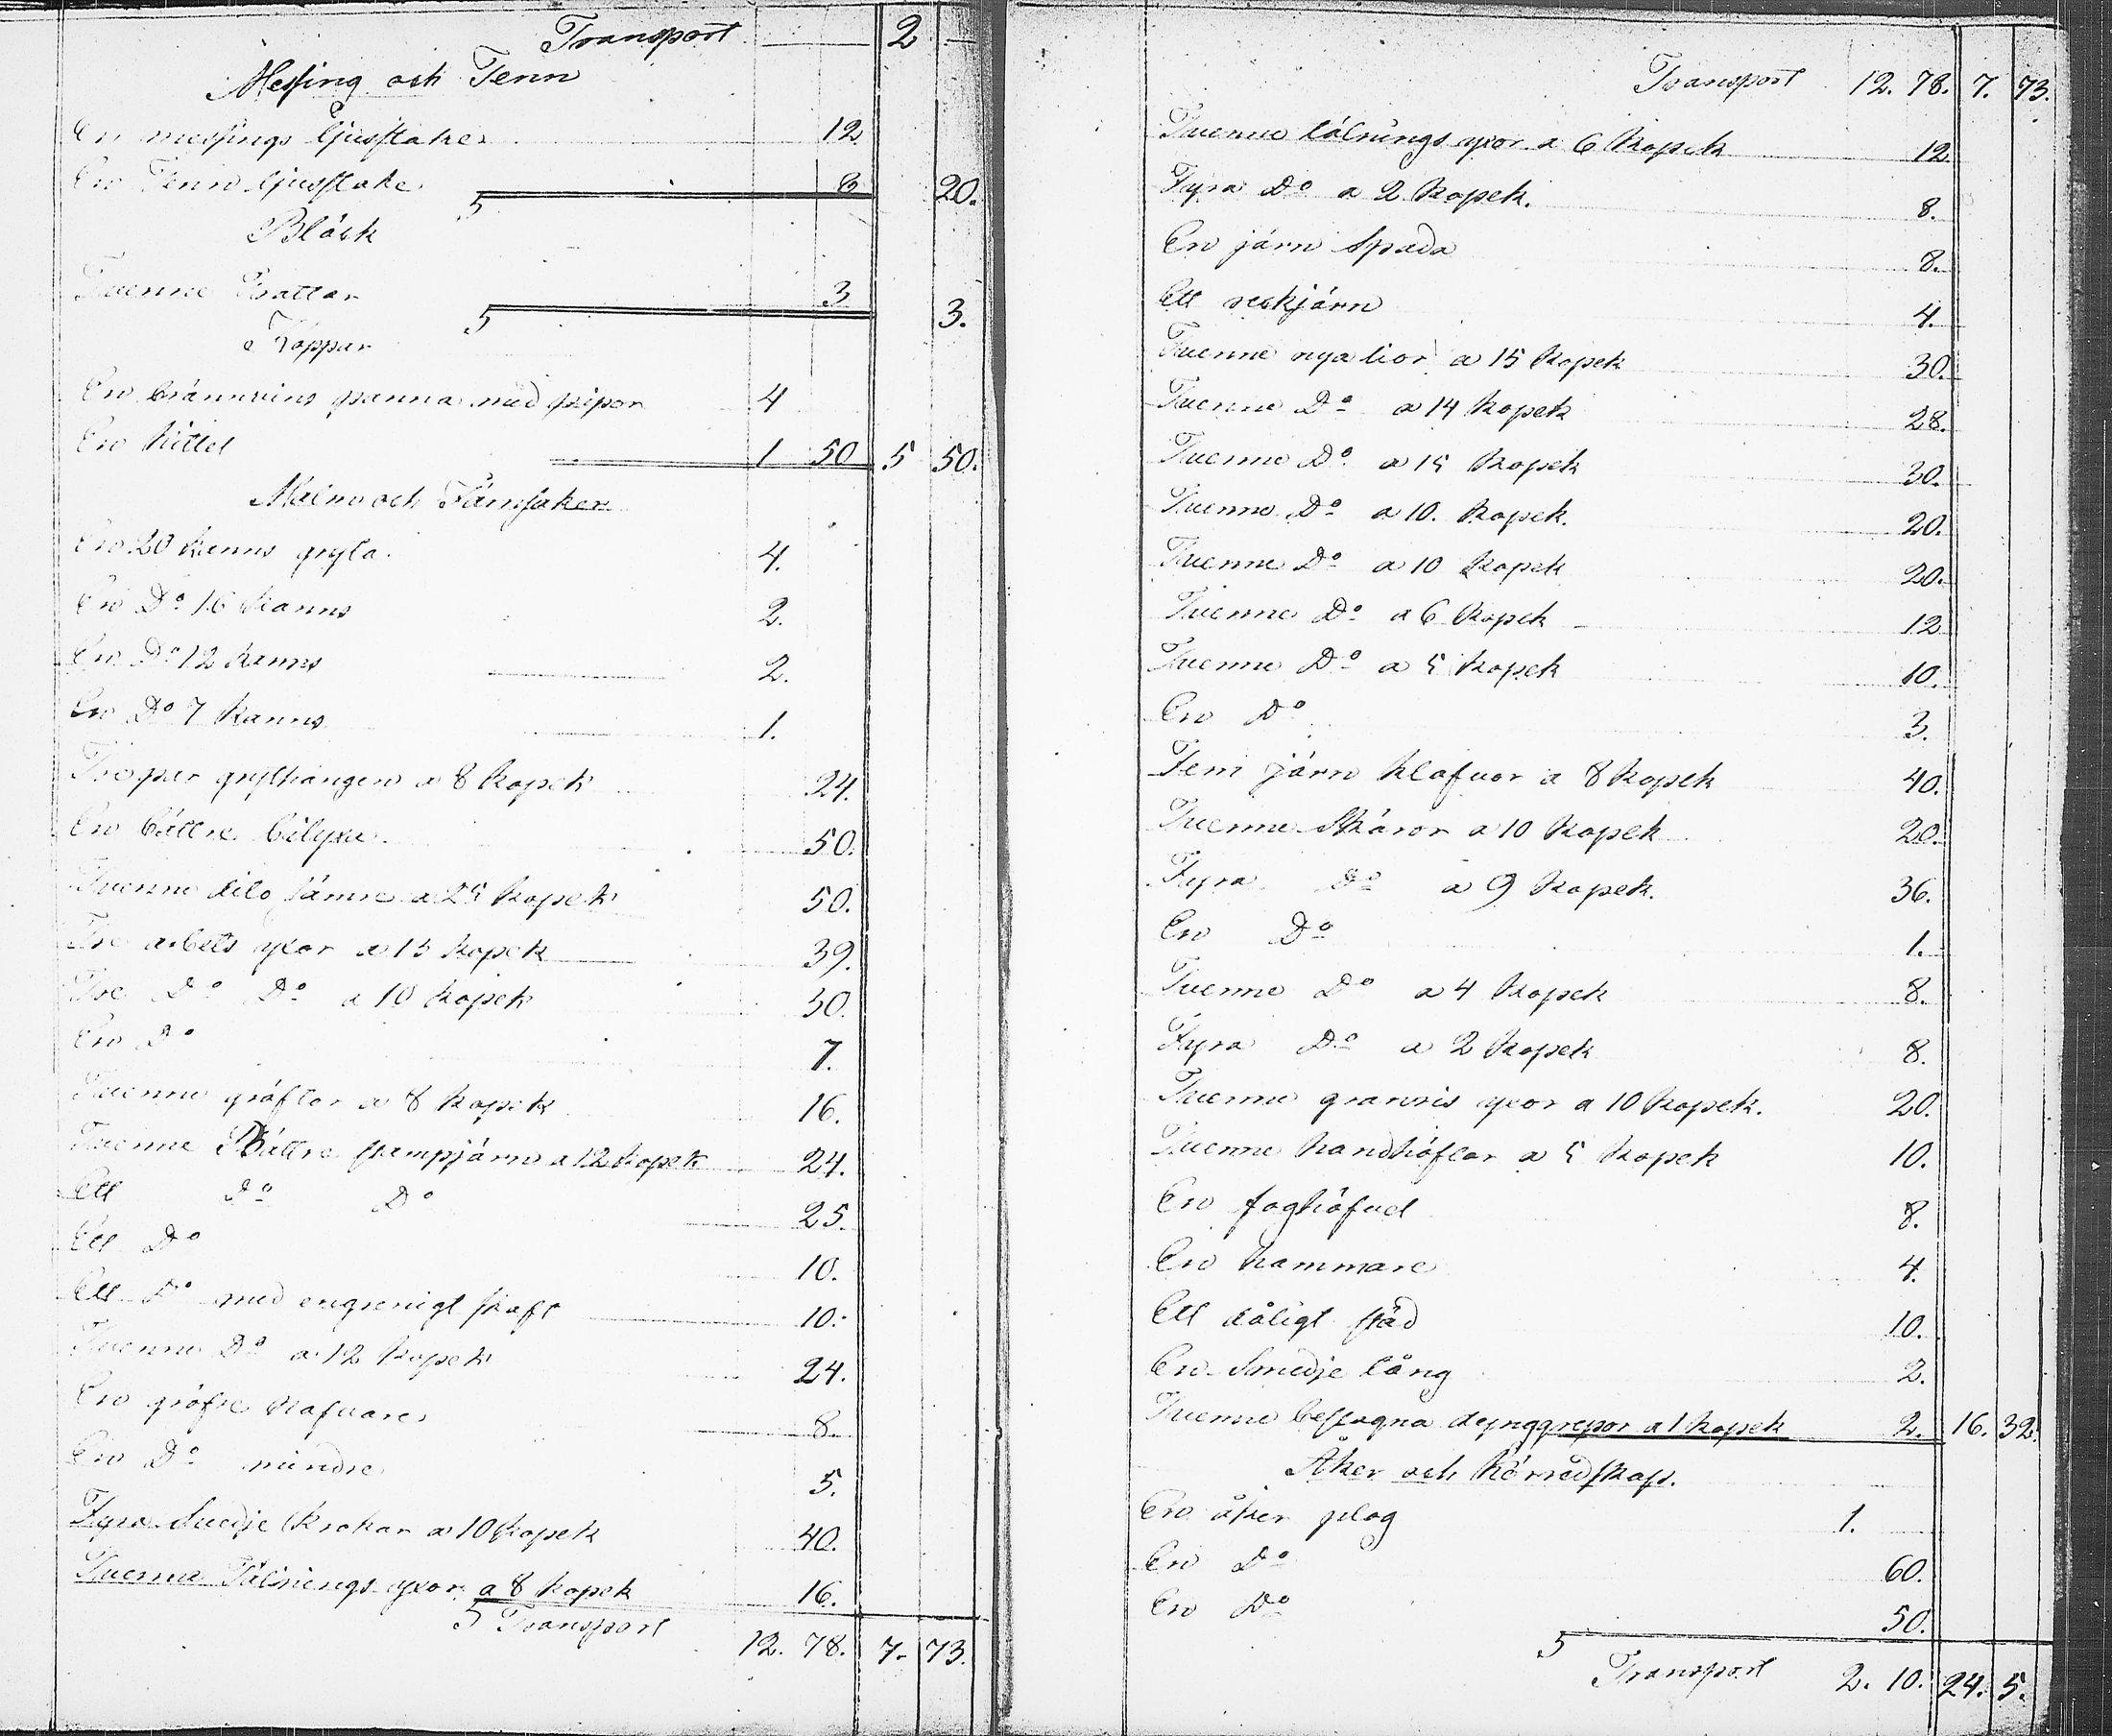 Transport 2
Messing och Tenn
En messings ljusstake 12
En Tenn ljusstake 8 20.
Bläck
Tvenne Trattar 3 3.
Koppar
En brännvins panna med pipor 4
En kittel 1 50 5 50.
Malm och Järnsaker
En 20 kanns gryta 4.
En Do 16 kanns 2.
En Do 12 kanns 2.
En Do 7 kanns 1.
Tre par grythängen a 8 kopek 24.
En bättre bilyxa 50.
Tvenne dito sämre a 25 kopek 50.
Tre arbets yxor a 13 kopek 39.
Tre Do Do a 10 kopek 30.
En Do 7.
Tvenne gräftor a 8 kopek 16.
Tvenne Bättre stampjärn a 12 kopek 24.
Ett Do Do 25.
Ett Do 10.
Ett Do med engrenigt skaft 10.
Tvenne Do a 12 kopek 24.
En gröfre nafvare 8.
En Do mindre 5.
Fyra Svedje krokar a 10 kopek 40.
Tvenne Tälnings yxor a 8 kopek 16.
Transport 12. 78. 7. 73.
Transport 12. 78. 7. 73.
Tvenne tälnings yxor a 6 kopek 12
Fyra Do a 2 kopek. 8.
En järn spada 8.
Ett järn 4.
Tvenne nya lior a 15 kopek 30.
Tvenne Do a 14 kopek 28.
Tvenne Do a 15 kopek 30.
Tvenne Do a 10. kopek. 20.
Tvenne Do a 10 kopek 20.
Tvenne Do a 6 kopek 12
Tvenne Do a 5 kopek 10.
En Do 3.
Fem järn klafvor a 8 kopek 40.
Tvenne Skäror a 10 kopek 20.
Fyra Do a 9 kopek. 36.
En Do 1.
Tvenne Do a 4 kopek 8.
Fyra Do a 2 kopek 8.
Tvenne granris yxor a 10 kopek. 20.
Tvenne handhöflar a 5 kopek 10.
En foghöfvel 8.
En hammare 4.
Ett dåligt städ 10.
En Smedje tång 2.
Tvenne beslagna dynggrepor a 1 kopek 2. 16. 32.
Åker och Körredskap.
En åker plog 1.
En Do 60.
En Do 50.
Transport 2. 10. 24. 5.